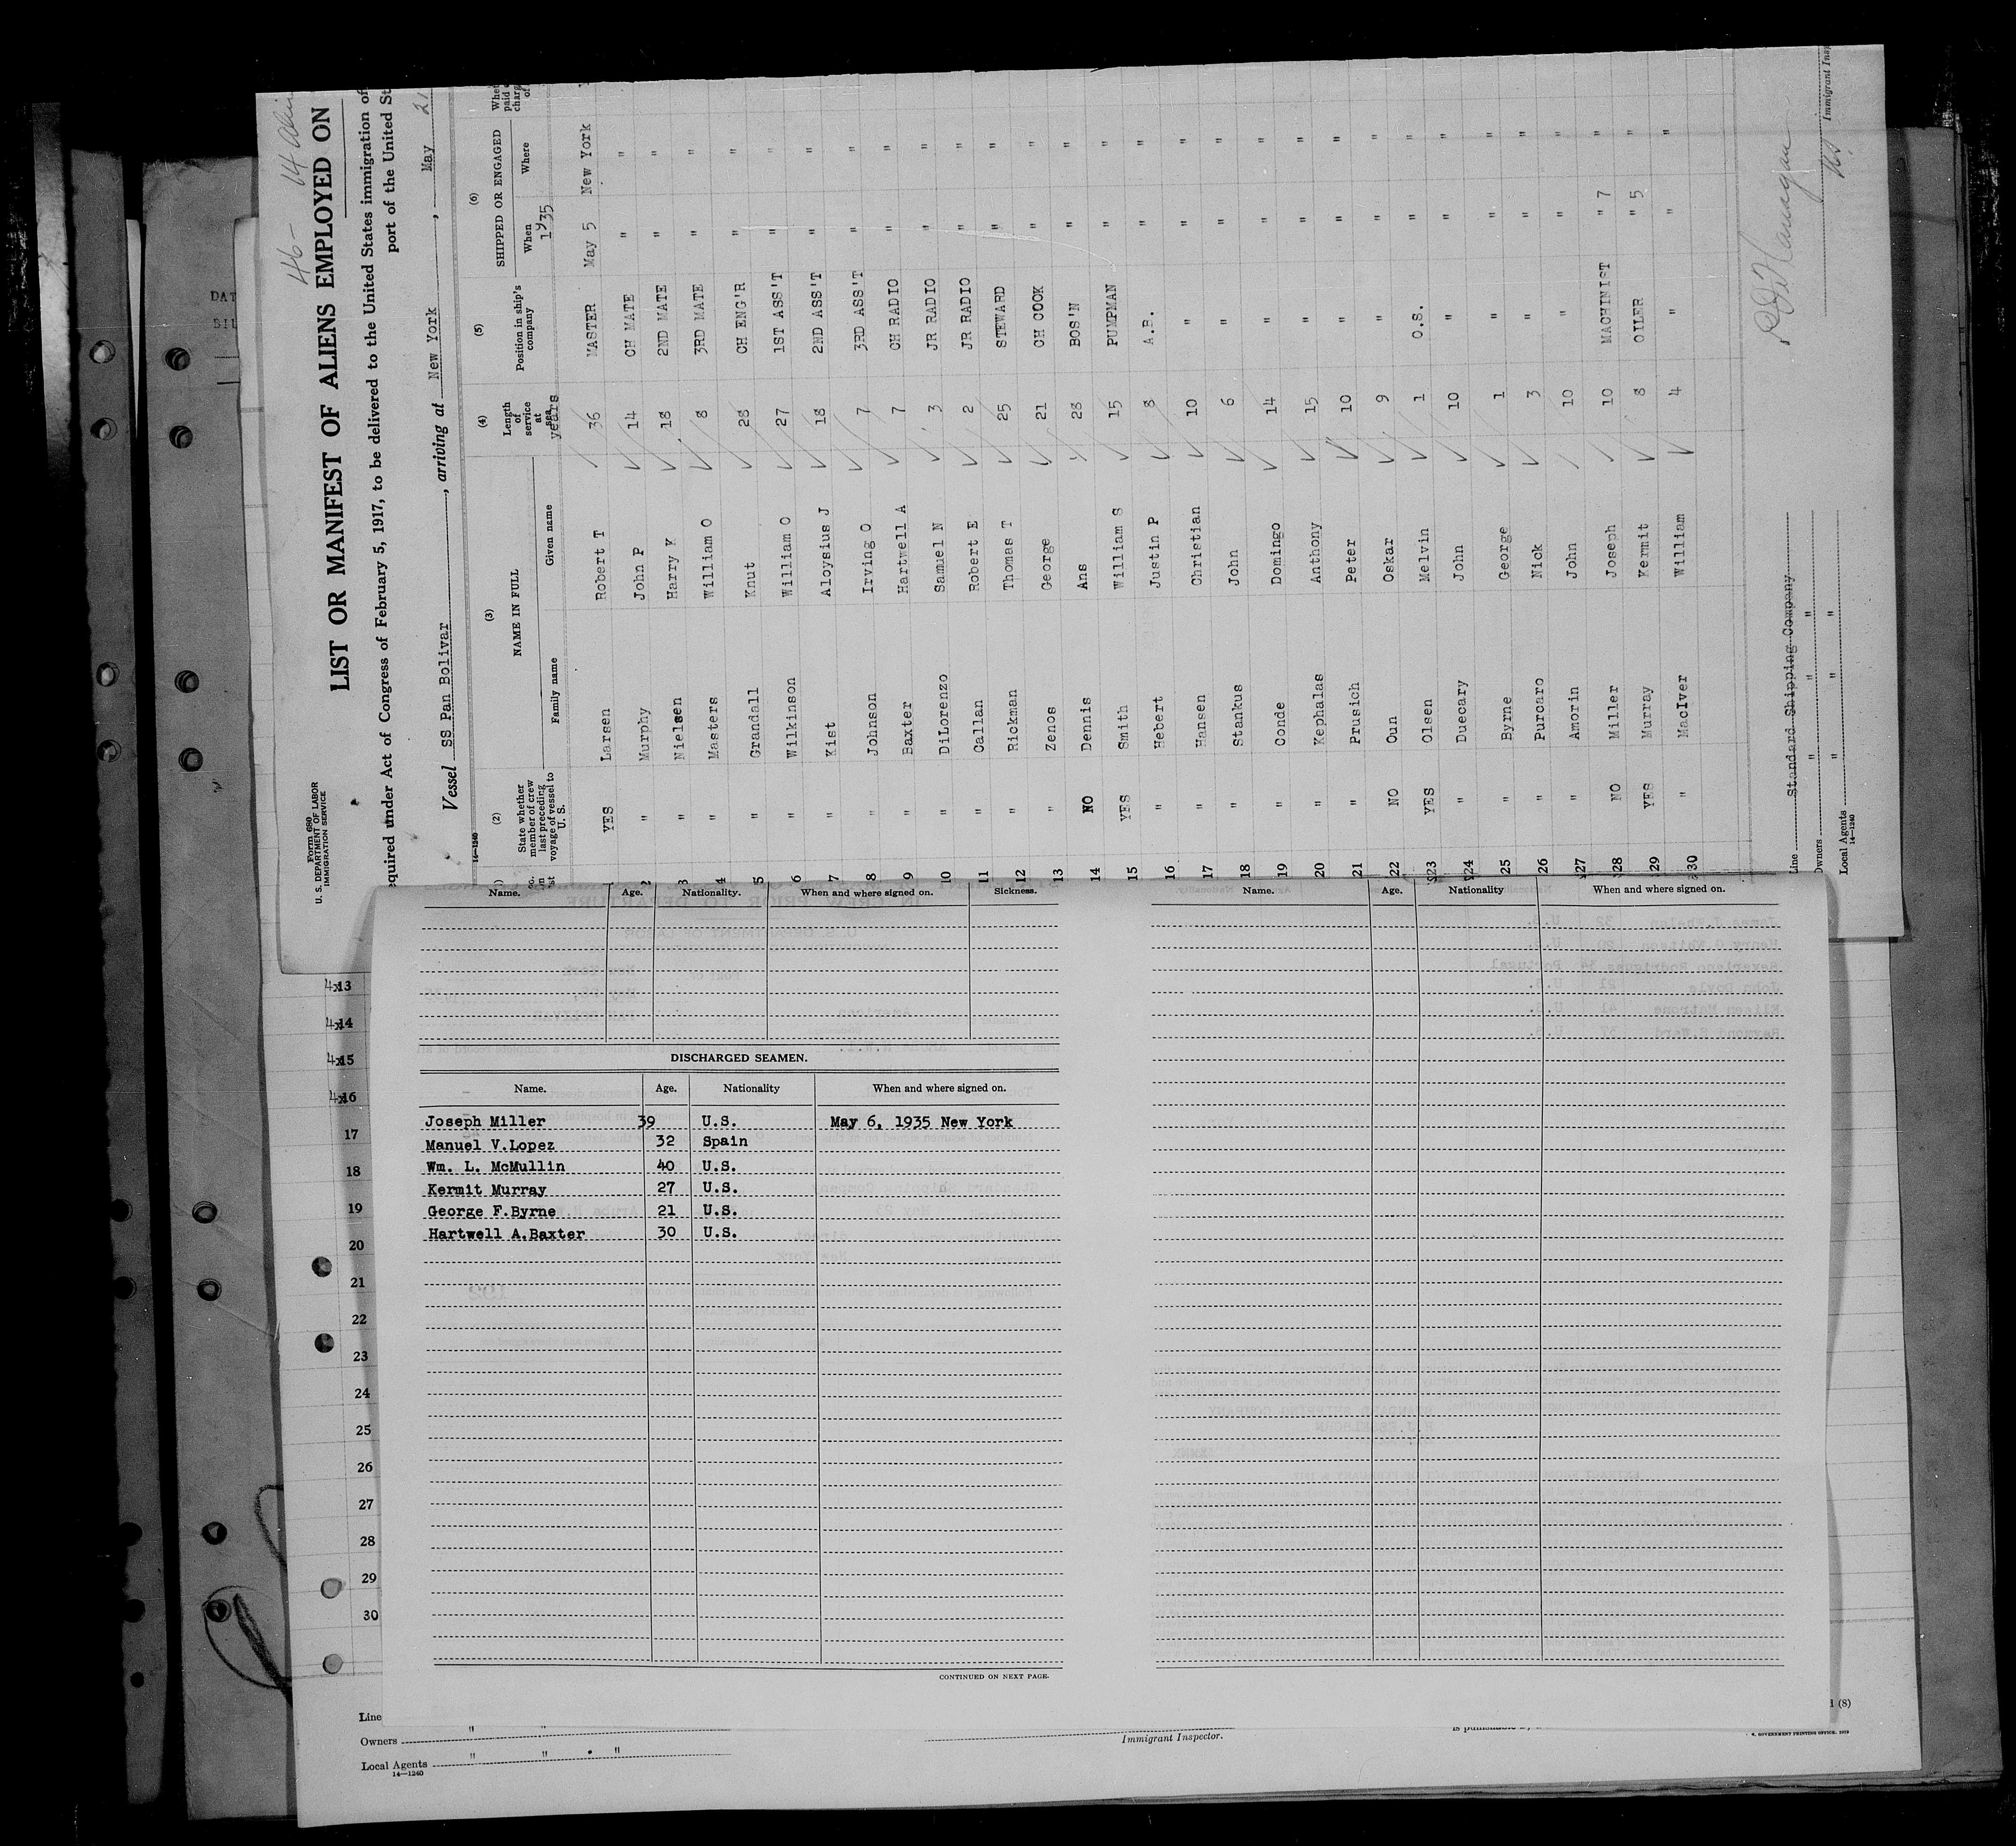 46 - 14
LIST OR MANIFEST OF ALIENS EMPLOYED ON
equired under Act of Congress of February 5, 1917, to be delivered to the United States immigration of
port of the United St
Form 680
U. S. DEPARTMENT OF LABOR
IMMIGRATION SERVICE
Vessel SS Pan Bolivar, arriving at New York, May 21
14—1240
(2) (3) (4) (5) (6)
State whether member of crew last preceding voyage of vessel to U. S.
NAME IN FULL
Family name Given name
Length of service at sea years
Position in ship's company
SHIPPED OR ENGAGED
When 1935 Where
YES Larsen Robert T 36 MASTER May 5 New York
2 " Murphy John P 14 CH MATE " "
3 " Nielsen Harry K 18 2ND MATE " "
4 " Masters William O 8 3RD MATE " "
5 " Grandall Knut 28 CH ENG'R " "
6 " Wilkinson William O 27 1ST ASS'T " "
7 " Kist Aloysius J 18 2ND ASS'T " "
8 " Johnson Irving O 7 3RD ASS'T " "
9 " Baxter Hartwell A 7 CH RADIO " "
10 " DiLorenzo Samuel N 3 JR RADIO " "
11 " Callan Robert E 2 JR RADIO " "
12 " Rickman Thomas T 25 STEWARD " "
13 " Zenos George 21 CH COOK " "
14 NO Dennis Ans 28 BOS'N " "
15 YES Smith William S 15 PUMPMAN " "
16 " Hebert Justin P 8 A.B. " "
17 " Hansen Christian 10 " " "
18 " Stankus John 6 " " "
19 " Conde Domingo 14 " " "
20 " Kephalas Anthony 15 " " "
21 " Prusich Peter 10 " " "
22 NO Oun Oskar 9 " " "
23 YES Olsen Melvin 1 O.S. " "
24 " Duecary John 10 " " "
25 " Byrne George 1 " " "
26 " Purcaro Nick 3 " " "
27 " Amorin John 10 " " "
28 NO Miller Joseph 10 MACHINIST " 7 "
29 YES Murray Kermit 8 OILER " 5 "
30 " MacIver William 4 " " "
Line Standard Shipping Company
Owners " " "
Local Agents " " "
14—1240
Immigrant Insp
Name. Age. Nationality. When and where signed on. Sickness.
DISCHARGED SEAMEN.
Name. Age. Nationality When and where signed on.
Joseph Miller 39 U.S. May 6, 1935 New York
Manuel V.Lopez 32 Spain
Wm. L. McMullin 40 U.S.
Kermit Murray 27 U.S.
George F.Byrne 21 U.S.
Hartwell A.Baxter 30 U.S.
CONTINUED ON NEXT PAGE.
Name. Age. Nationality When and where signed on.
13
14
15
16
17
18
19
20
21
22
23
24
25
26
27
28
29
30
Line
Owners " "
Local Agents " " "
14—1240
Immigrant Inspector.
(8)
GOVERNMENT PRINTING OFFICE
DAT